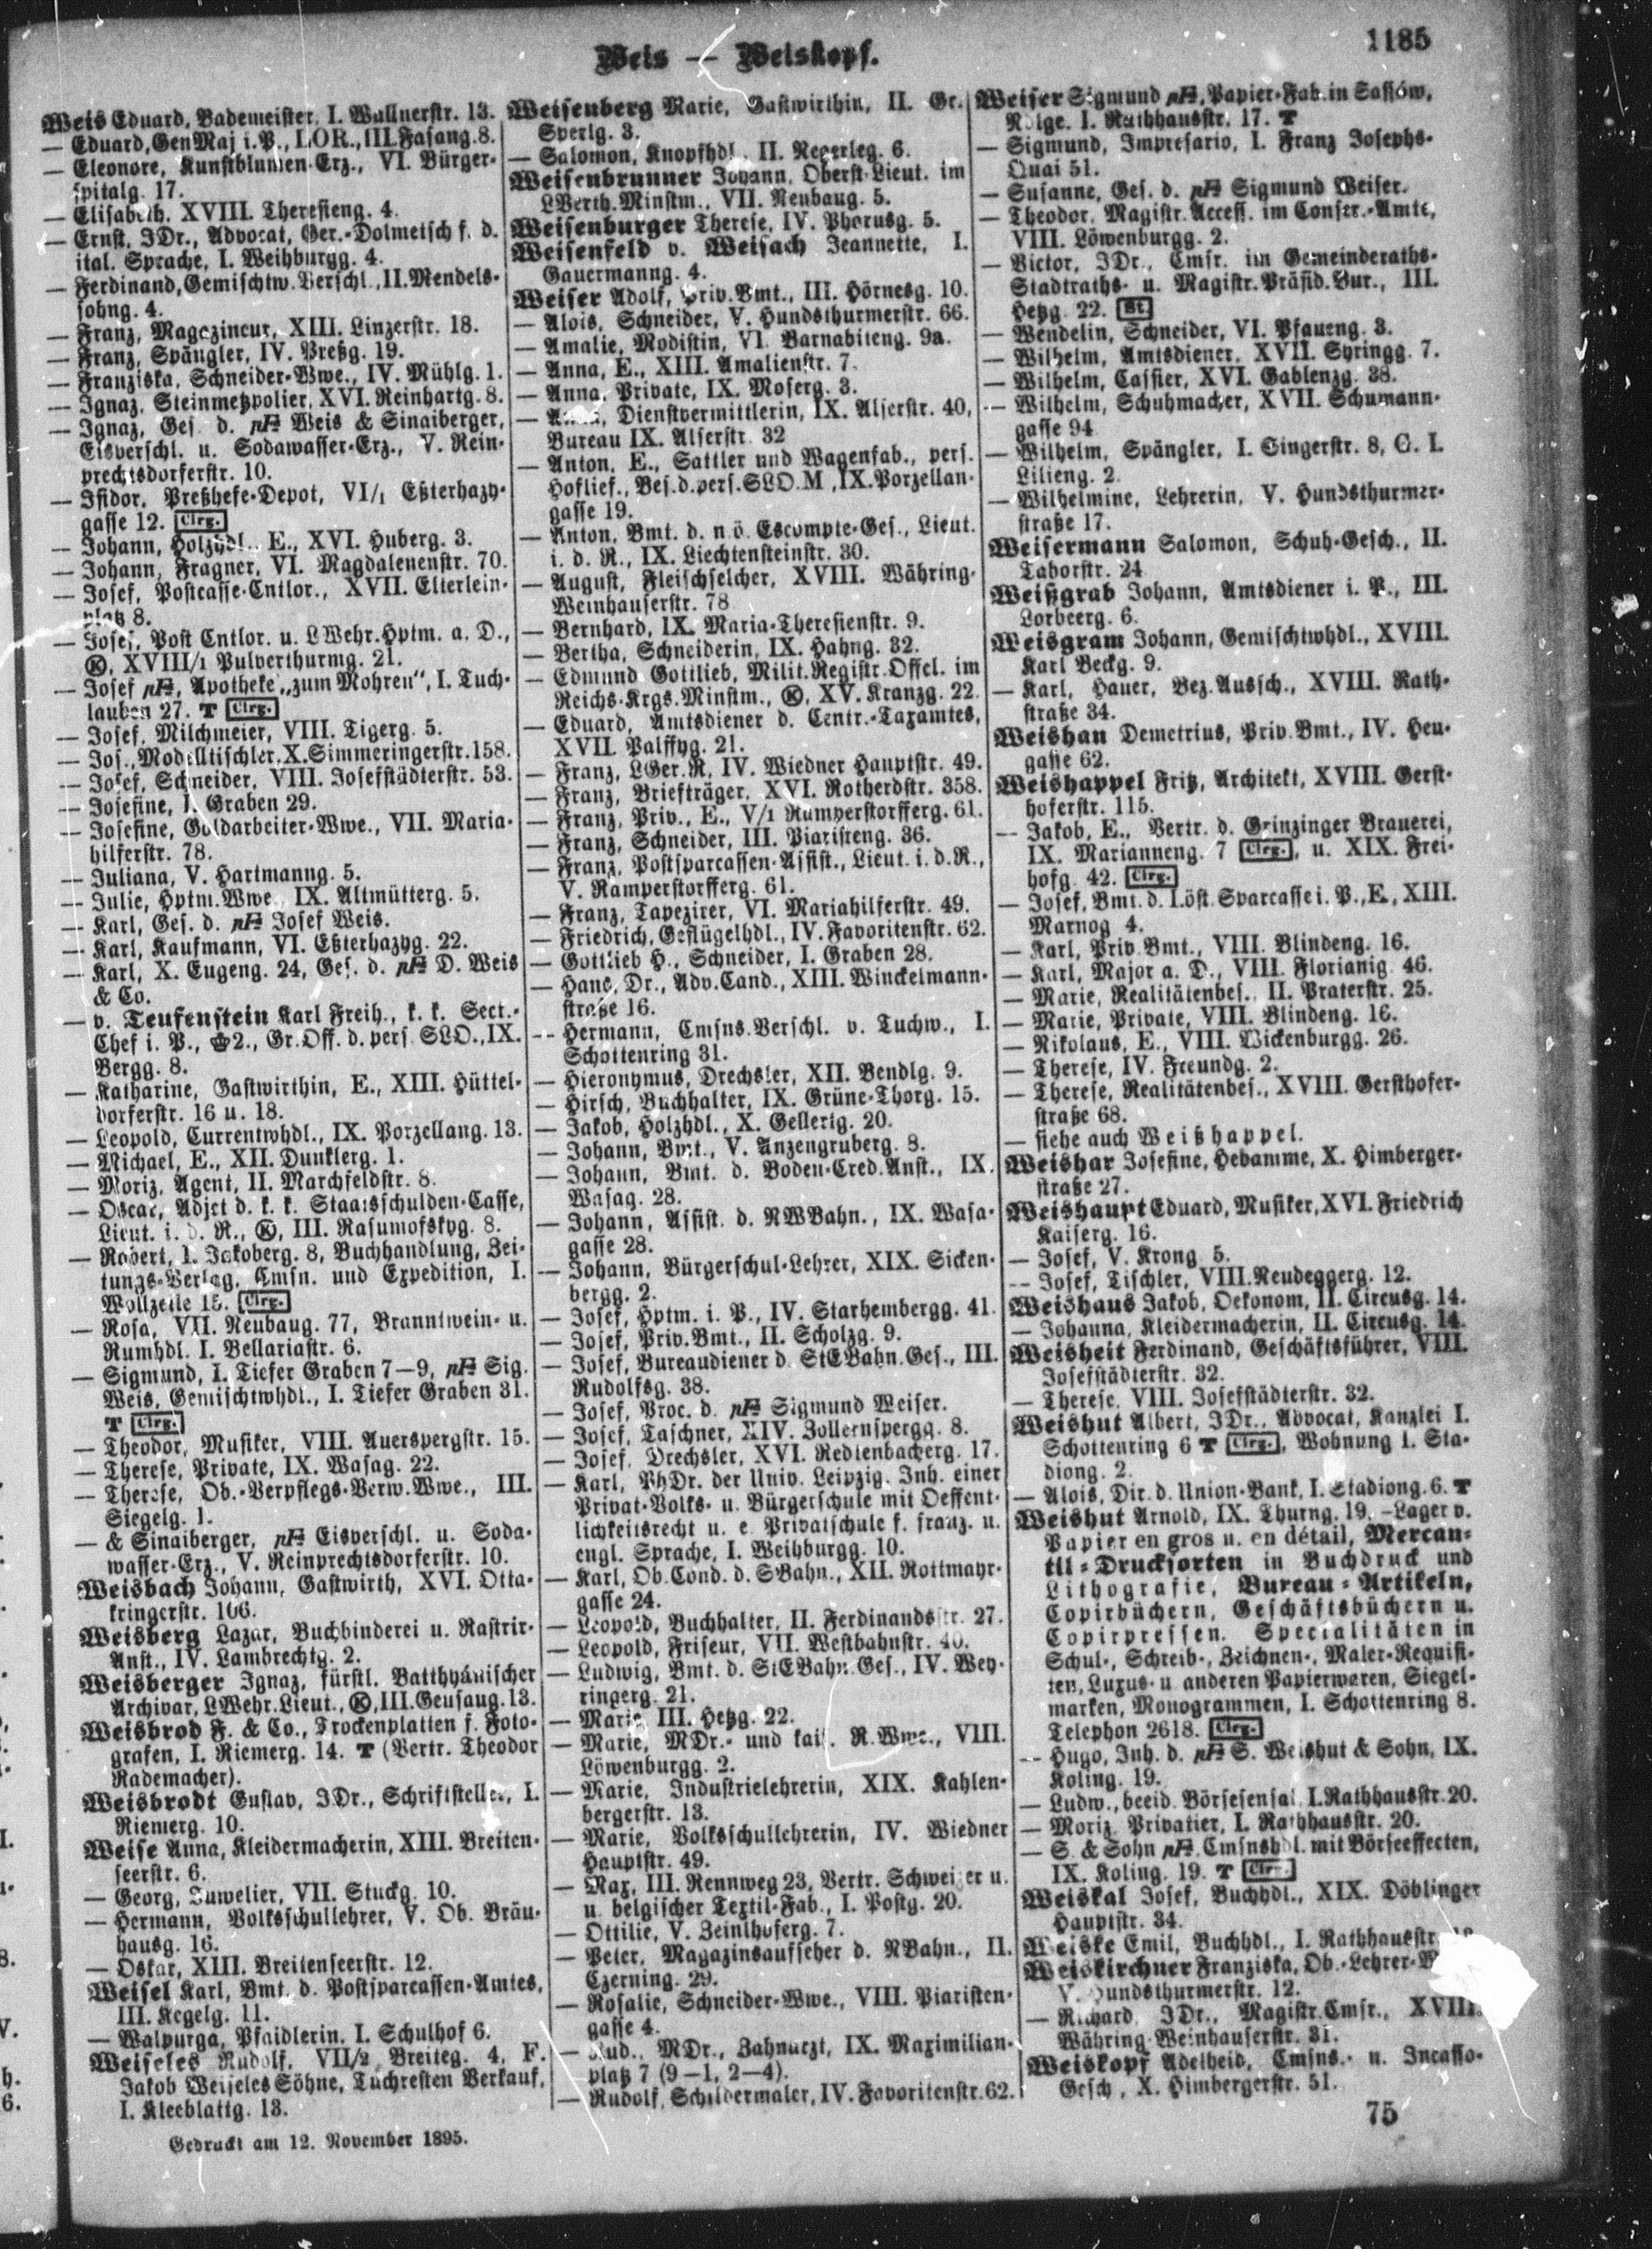 Weis — Weiskopf.
1185
Weis Eduard, Bademeister, I. Wallnerstr. 13.
— Eduard, GenMaj i. P., LOR., III. Fasang. 8.
— Eleonore, Kunstblumen-Erz., VI. Bürger-
spitalg. 17.
— Elisabeth, XVIII. Theresieng. 4.
— Ernst, JDr., Advocat, Ger.-Dolmetsch f. d.
ital. Sprache, I. Weihburgg. 4.
— Ferdinand, Gemischtw. Verschl., II. Mendels-
sohng. 4.
— Franz, Magazineur, XIII. Linzerstr. 18.
— Franz, Spängler, IV. Preßg. 19.
— Franziska, Schneider-Wwe., IV. Mühlg. 1.
— Ignaz, Steinmetzpolier, XVI. Reinhartg. 8.
— Ignaz, Ges. d. pF Weis & Sinaiberger,
Eisverschl. u. Sodawasser-Erz., V. Rein-
prechtsdorferstr. 10.
— Isidor, Preßhefe-Depot, VI/1 Eßterhazy-
gasse 12. Clrg.
— Johann, Holzhdl., E., XVI. Huberg. 3.
— Johann, Fragner, VI. Magdalenenstr. 70.
— Josef, Postcasse-Cntlor., XVII. Elterlein-
platz 8.
— Josef, Post Cntlor. u. LWehr.Hptm. a. D.,
Ⓚ, XVIII/1 Pulverthurmg. 21.
— Josef pF, Apotheke „zum Mohren", I. Tuch-
lauben 27. T Clrg.
— Josef, Milchmeier, VIII. Tigerg. 5.
— Jos., Modelltischler, X. Simmeringerstr. 158.
— Josef, Schneider, VIII. Josefstädterstr. 53.
— Josefine, I. Graben 29.
— Josefine, Goldarbeiter-Wwe., VII. Maria-
hilferstr. 78.
— Juliana, V. Hartmanng. 5.
— Julie, Hptm.Wwe., IX. Altmütterg. 5.
— Karl, Ges. d. pF Josef Weis.
— Karl, Kaufmann, VI. Eßterhazyg. 22.
— Karl, X. Eugeng. 24, Ges. d. pF D. Weis
& Co.
— v. Teufenstein Karl Freih., k. k. Sect.-
Chef i. P., ♚2., Gr.Off. d. pers SLO., IX.
Bergg. 8.
— Katharine, Gastwirthin, E., XIII. Hüttel-
dorferstr. 16 u. 18.
— Leopold, Currentwhdl., IX. Porzellang. 13.
— Michael, E., XII. Dunklerg. 1.
— Moriz, Agent, II. Marchfeldstr. 8.
— Oscar, Adjct d. k. k. Staatsschulden-Casse,
Lieut. i. d. R., Ⓚ, III. Rasumofskyg. 8.
— Robert, I. Jakoberg. 8, Buchhandlung, Zei-
tungs-Verlag, Cmsn. und Expedition, I.
Wollzeile 15. Clrg.
— Rosa, VII. Neubaug. 77, Branntwein- u.
Rumhdl. I. Bellariastr. 6.
— Sigmund, I. Tiefer Graben 7—9, pF Sig.
Weis, Gemischtwhdl., I. Tiefer Graben 31.
T Clrg.
— Theodor, Musiker, VIII. Auerspergstr. 15.
— Therese, Private, IX. Wasag. 22.
— Therese, Ob.-Verpflegs-Verw.Wwe., III.
Siegelg. 1.
— & Sinaiberger, pF Eisverschl. u. Soda-
wasser-Erz., V. Reinprechtsdorferstr. 10.
Weisbach Johann, Gastwirth, XVI. Otta-
kringerstr. 106.
Weisberg Lazar, Buchbinderei u. Rastrir-
Anst., IV. Lambrechtg. 2.
Weisberger Ignaz, fürstl. Batthyánischer
Archivar, LWehr.Lieut., Ⓚ, III. Geusaug. 13.
Weisbrod F. & Co., Trockenplatten f. Foto-
grafen, I. Riemerg. 14. T (Vertr. Theodor
Rademacher).
Weisbrodt Gustav, JDr., Schriftsteller, I.
Riemerg. 10.
Weise Anna, Kleidermacherin, XIII. Breiten-
seerstr. 6.
— Georg, Juwelier, VII. Stuckg. 10.
— Hermann, Volksschullehrer, V. Ob. Bräu-
hausg. 16.
— Oskar, XIII. Breitenseerstr. 12.
Weisel Karl, Bmt. d. Postsparcassen-Amtes,
III. Kegelg. 11.
— Walpurga, Pfaidlerin, I. Schulhof 6.
Weiseles Rudolf, VII/2 Breiteg. 4, F.
Jakob Weiseles Söhne, Tuchresten Verkauf,
I. Kleeblattg. 13.
Gedruckt am 12. November 1895.
Weisenberg Marie, Gastwirthin, II. Gr.
Sperlg. 3.
— Salomon, Knopfhdl., II. Negerleg. 6.
Weisenbrunner Johann, Oberst-Lieut. im
LVerth.Minstm., VII. Neubaug. 5.
Weisenburger Therese, IV. Phorusg. 5.
Weisenfeld v. Weisach Jeannette, I.
Gauermanng. 4.
Weiser Adolf, Priv.Bmt., III. Hörnesg. 10.
— Alois, Schneider, V. Hundsthurmerstr. 66.
— Amalie, Modistin, VI. Barnabiteng. 9a.
— Anna, E., XIII. Amalienstr. 7.
— Anna, Private, IX. Moserg. 3.
— Anna, Dienstvermittlerin, IX. Alserstr. 40,
Bureau IX. Alserstr. 32
— Anton, E., Sattler und Wagenfab., pers.
Hoflief., Bes. d. pers. SLO.M, IX. Porzellan-
gasse 19.
— Anton, Bmt. d. n ö. Escompte-Ges., Lieut.
i. d. R., IX. Liechtensteinstr. 30.
— August, Fleischselcher, XVIII. Währing-
Weinhauserstr. 78
— Bernhard, IX. Maria-Theresienstr. 9.
— Bertha, Schneiderin, IX. Hahng. 32.
— Edmund Gottlieb, Milit.Registr.Offcl. im
Reichs-Krgs.Minstm., Ⓚ, XV. Kranzg. 22.
— Eduard, Amtsdiener d. Centr.-Taxamtes,
XVII. Palffyg. 21.
— Franz, LGer.R, IV. Wiedner Hauptstr. 49.
— Franz, Briefträger, XVI. Rotherdstr. 358.
— Franz, Priv., E., V/1 Ramperstorfferg. 61.
— Franz, Schneider, III. Piaristeng. 36.
— Franz, Postsparcassen-Assist., Lieut. i. d. R.,
V. Ramperstorfferg. 61.
— Franz, Tapezirer, VI. Mariahilferstr. 49.
— Friedrich, Geflügelhdl., IV. Favoritenstr. 62.
— Gottlieb H., Schneider, I. Graben 28.
— Hans, Dr., Adv.Cand., XIII. Winckelmann-
straße 16.
— Hermann, Cmsns.Verschl. v. Tuchw., I.
Schottenring 31.
— Hieronymus, Drechsler, XII. Bendlg. 9.
— Hirsch, Buchhalter, IX. Grüne-Thorg. 15.
— Jakob, Holzhdl., X. Gellertg. 20.
— Johann, Bmt., V. Anzengruberg. 8.
— Johann, Bmt. d. Boden-Cred.Anst., IX.
Wasag. 28.
— Johann, Assist. d. NWBahn., IX. Wasa-
gasse 28.
— Johann, Bürgerschul-Lehrer, XIX. Sicken-
bergg. 2.
— Josef, Hptm. i. P., IV. Starhembergg. 41.
— Josef, Priv.Bmt., II. Scholzg. 9.
— Josef, Bureaudiener d. StEBahn.Ges., III.
Rudolfsg. 38.
— Josef, Proc. d. pF Sigmund Weiser.
— Josef, Taschner, XIV. Zollernspergg. 8.
— Josef, Drechsler, XVI. Redtenbacherg. 17.
— Karl, PhDr. der Univ. Leipzig. Inh. einer
Privat-Volks- u. Bürgerschule mit Oeffent-
lichkeitsrecht u. e. Privatschule f. franz. u.
engl. Sprache, I. Weihburgg. 10.
— Karl, Ob.Cond. d. SBahn., XII. Rottmayr-
gasse 24.
— Leopold, Buchhalter, II. Ferdinandsstr. 27.
— Leopold, Friseur, VII. Westbahnstr. 40.
— Ludwig, Bmt. d. StEBahn.Ges., IV. Wey-
ringerg. 21.
— Marie, III. Hetzg. 22.
— Marie, MDr.- und kais. R.Wwe., VIII.
Löwenburgg. 2.
— Marie, Industrielehrerin, XIX. Kahlen-
bergerstr. 13.
— Marie, Volksschullehrerin, IV. Wiedner
Hauptstr. 49.
— Max, III. Rennweg 23, Vertr. Schweizer u.
u. belgischer Textil-Fab., I. Postg. 20.
— Ottilie, V. Zeinlhoferg. 7.
— Peter, Magazinsaufseher d. NBahn., II.
Czerning. 29.
— Rosalie, Schneider-Wwe., VIII. Piaristen-
gasse 4.
— Rud., MDr., Zahnarzt, IX. Maximilian-
platz 7 (9—1, 2—4).
— Rudolf, Schildermaler, IV. Favoritenstr. 62.
Weiser Sigmund pF, Papier-Fab. in Sassow,
Ndlge. I. Rathhausstr. 17. T
— Sigmund, Impresario, I. Franz Josephs-
Quai 51.
— Susanne, Ges. d. pF Sigmund Weiser.
— Theodor, Magistr.Access. im Conscr.-Amte,
VIII. Löwenburgg. 2.
— Victor, JDr., Cmsr. im Gemeinderaths-
Stadtraths- u. Magistr.Präsid.Bur., III.
Hetzg. 22. St.
— Wendelin, Schneider, VI. Pfaueng. 3.
— Wilhelm, Amtsdiener, XVII. Syringg. 7.
— Wilhelm, Cassier, XVI. Gablenzg. 38.
— Wilhelm, Schuhmacher, XVII. Schumann-
gasse 94
— Wilhelm, Spängler, I. Singerstr. 8, G. I.
Lilieng. 2.
— Wilhelmine, Lehrerin, V. Hundsthurmer-
straße 17.
Weisermann Salomon, Schuh-Gesch., II.
Taborstr. 24
Weißgrab Johann, Amtsdiener i. P., III.
Lorbeerg. 6.
Weisgram Johann, Gemischtwhdl., XVIII.
Karl Beckg. 9.
— Karl, Hauer, Bez.Aussch., XVIII. Rath-
straße 34.
Weishan Demetrius, Priv.Bmt., IV. Heu-
gasse 62.
Weishappel Fritz, Architekt, XVIII. Gerst-
hoferstr. 115.
— Jakob, E., Vertr. d. Grinzinger Brauerei,
IX. Marianneng. 7 Clrg., u. XIX. Frei-
hofg. 42. Clrg.
— Josef, Bmt. d. I. öst. Sparcasse i. P., E., XIII.
Marnog 4.
— Karl, Priv.Bmt., VIII. Blindeng. 16.
— Karl, Major a. D., VIII. Florianig. 46.
— Marie, Realitätenbes., II. Praterstr. 25.
— Marie, Private, VIII. Blindeng. 16.
— Nikolaus, E., VIII. Wickenburgg. 26.
— Therese, IV. Freundg. 2.
— Therese, Realitätenbes., XVIII. Gersthofer-
straße 68.
— siehe auch Weißhappel.
Weishar Josefine, Hebamme, X. Himberger-
straße 27.
Weishaupt Eduard, Musiker, XVI. Friedrich
Kaiserg. 16.
— Josef, V. Krong. 5.
— Josef, Tischler, VIII. Neudeggerg. 12.
Weishaus Jakob, Oekonom, II. Circusg. 14.
— Johanna, Kleidermacherin, II. Circusg. 14.
Weisheit Ferdinand, Geschäftsführer, VIII.
Josefstädterstr. 32.
— Therese, VIII. Josefstädterstr. 32.
Weishut Albert, JDr., Advocat, Kanzlei I.
Schottenring 6 T Clrg., Wohnung I. Sta-
diong. 2.
— Alois, Dir. d. Union-Bank, I. Stadiong. 6. T
Weishut Arnold, IX. Thurng. 19, –Lager v.
Papier en gros u. en détail, Mercan-
til-Drucksorten in Buchdruck und
Lithografie, Bureau-Artikeln,
Copirbüchern, Geschäftsbüchern u.
Copirpressen. Specialitäten in
Schul-, Schreib-, Zeichnen-, Maler-Requisi-
ten, Luxus- u. anderen Papierwaren, Siegel-
marken, Monogrammen, I. Schottenring 8.
Telephon 2618. Clrg.
— Hugo, Inh. d. pF S. Weishut & Sohn, IX.
Koling. 19.
— Ludw., beeid. Börsesensal, I. Rathhausstr. 20.
— Moriz, Privatier, I. Rathhausstr. 20.
— S. & Sohn pF Cmsnshdl. mit Börseeffecten,
IX. Koling. 19. T Clrg.
Weiskal Josef, Buchhdl., XIX. Döblinger
Hauptstr. 34.
Weiske Emil, Buchhdl., I. Rathhausstr.
Weiskirchner Franziska, Ob.-Lehrer-
V. Hundsthurmerstr. 12.
— Richard, JDr., Magistr.Cmsr., XVIII.
Währing-Weinhauserstr. 31.
Weiskopf Adelheid, Cmsns.- u. Incasso-
Gesch., X. Himbergerstr. 51.
75